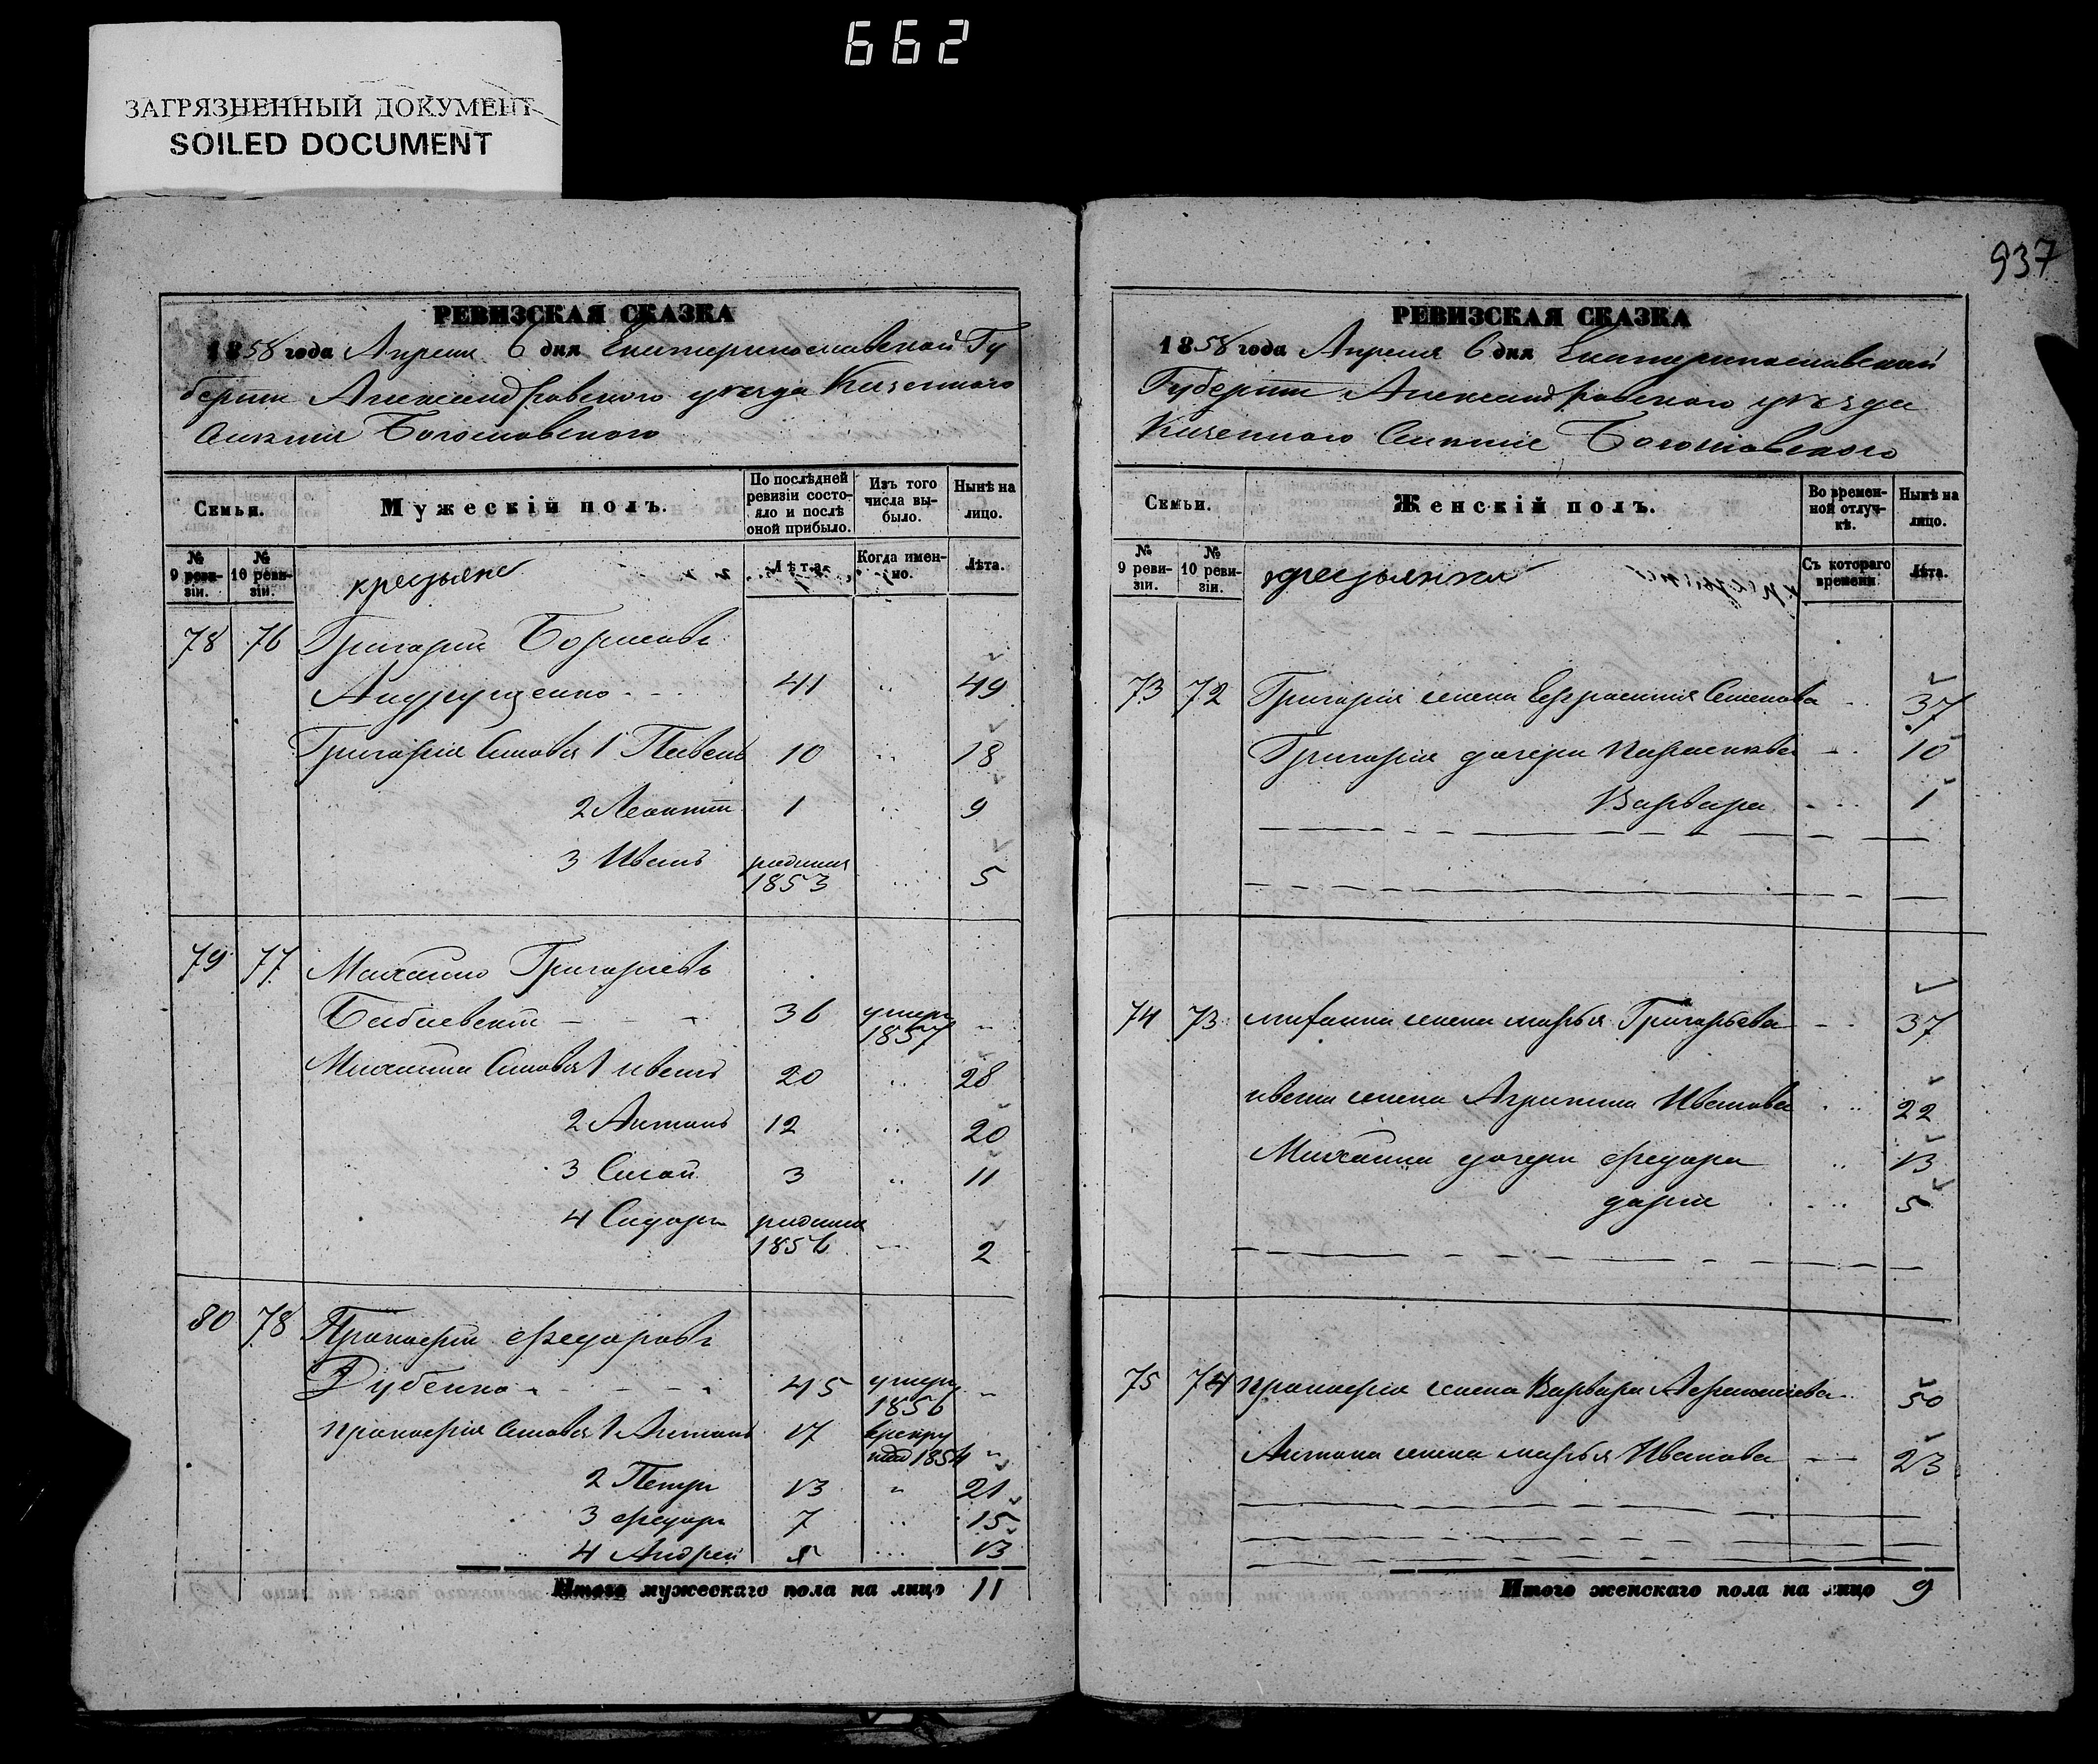 662
ЗАГРЯЗНЕННЫЙ ДОКУМЕНТ
SOILED DOCUMENT
РЕВИЗСКАЯ СКАЗКА
1858 года Апреля 6 дня Екатеринославской Гу
берніи Александровского уезда Казенного
Селенія
Семьи.
Мужескій полъ.
По послѣдней ревизіи состо-яло и послѣ оной прибыло.
Изъ того числа вы-было.
Нынѣ на лицо.
№ 9 реви-зіи.
№ 10 реви-зіи.
крестьяне
Лѣта.
Когда имен-но.
Лѣта.
78 76 Григорій Борисовъ
Андрущенко 41 " 49
Григорія Сыновья 1 10 " 18
2 Леонтій 1 " 9
3 Иванъ родился 1853 " 5
79 77 Михайло Григорьевъ
36 умер 1857 "
Михайла Сыновья 1 иванъ 20 " 28
2 Антонъ 12 " 20
3 Сысой 3 " 11
4 Сидоръ родился 1856 " 2
80 78 Прокофій Федоровъ
Дубенко 45 умеръ 1856 "
Прокофія Сыновья 1 Антонъ 17 1854 "
2 Петръ 13 " 21
3 Федоръ 7 " 15
4 Андрей 5 " 13
Итого мужескаго пола на лицо 11
937
РЕВИЗСКАЯ СКАЗКА
1858 года Апреля 6 дня Екатеринославской
Губерніи Александровского уезда
Казенного Селенія
Семьи.
Женскій полъ.
Во времен-ной отлуч-кѣ.
Нынѣ на лицо.
№ 9 реви-зіи.
№ 10 реви-зіи.
крестьянки
Съ котораго времени
Лѣта.
73 72 Григорія жена Ефросинія Семенова 37
Григорія дочери Парасковья 10
Варвара 1
74 73 михаила жена марья Григорьева 37
ивана жена Агрипина Иванова 22
Михайла дочери Федора 13
дарія 5
75 74 прокофія жена Варвара 50
Антона жена марья Иванова 23
Итого женскаго пола на лицо 9